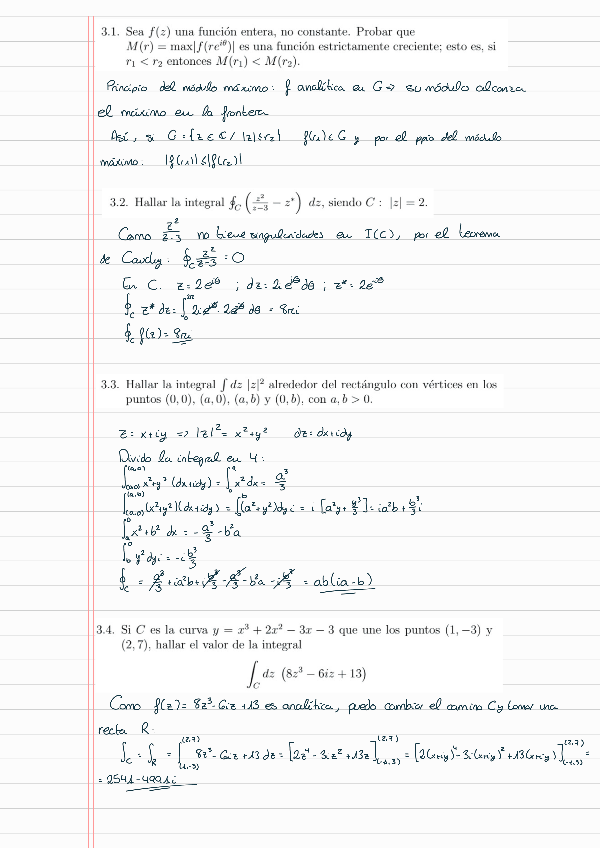 3.1. Sea f(z) una función entera, no constante. Probar que
M(r) = max|f(re^{iθ})| es una función estrictamente creciente; esto es, si
r₁ < r₂ entonces M(r₁) < M(r₂).
Principio del módulo máximo: f analítica en G => su módulo alcanza
el máximo en la frontera
Así, si G = {z ∈ ℂ / |z| ≤ r₂} f(r₁) ∈ G y por el ppio del módulo
máximo: |f(r₁)| ≤ |f(r₂)|
3.2. Hallar la integral ∮_C (z²/(z−3) − z*) dz, siendo C : |z| = 2.
Como z²/(z-3) no tiene singularidades en I(C), por el teorema
de Cauchy: ∮_C z²/(z-3) = 0
En C. z = 2e^{iθ} ; dz = 2ie^{iθ}dθ ; z* = 2e^{-iθ}
∮_C z* dz = ∫_0^{2π} 2ie^{iθ} · 2e^{-iθ} dθ = 8πi
∮_C f(z) = 8πi
3.3. Hallar la integral ∫ dz |z|² alrededor del rectángulo con vértices en los
puntos (0,0), (a,0), (a,b) y (0,b), con a,b > 0.
z = x+iy => |z|² = x²+y² dz = dx+idy
Divido la integral en 4:
∫_{(0,0)}^{(a,0)} x²+y² (dx+idy) = ∫_0^a x² dx = a³/3
∫_{(a,0)}^{(a,b)} (x²+y²)(dx+idy) = ∫_0^b (a²+y²)dy i = i [a²y + y³/3] = ia²b + b³/3 i
∫_a^0 x²+b² dx = -a³/3 - b²a
∫_b^0 y² dy i = -i b³/3
∮_C = a³/3 + ia²b + i b³/3 - a³/3 - b²a - i b³/3 = ab(ia-b)
3.4. Si C es la curva y = x³ + 2x² − 3x − 3 que une los puntos (1,−3) y
(2,7), hallar el valor de la integral
∫_C dz (8z³ − 6iz + 13)
Como f(z) = 8z³-6iz+13 es analítica, puedo cambiar el camino C y tomar una
recta R.
∫_C = ∫_R = ∫_{(1,-3)}^{(2,7)} 8z³-6iz+13 dz = [2z⁴-3iz²+13z]_{(1,-3)}^{(2,7)} = [2(x+iy)⁴-3i(x+iy)²+13(x+iy)]_{(1,-3)}^{(2,7)} =